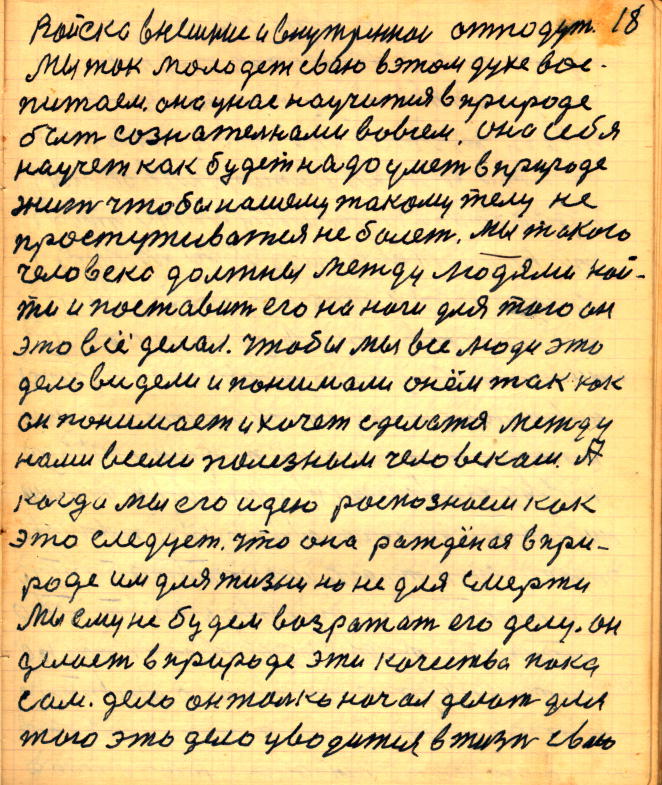 Войска внешние и внутренние отподут. 18
Мы ток молодеж сваю вэтом духе вос-
питаем. она унас научится вприроде
быт сознателнами вовсем. она себя
научет как будет надо умет вприроде
жит чтобы нашему такому телу не
простуживатся не болет. мы такого
человека должны между людями най-
ти и поставит его на ноги для того он
это всё делал. чтобы мы все люди это
дело видели и понимали онём так как
он понимает и хочет сделатя между
нами всеми полезным человекам. А
когда мы его идею роспознаем как
это следует. что она раждёная впри-
роде им для жизни но не для смерти
Мы ему не будем возражат его делу. он
делает вприроде эти качества пока
сам. дело он толко начал делат для
того это дело уводится, вжизн сваю